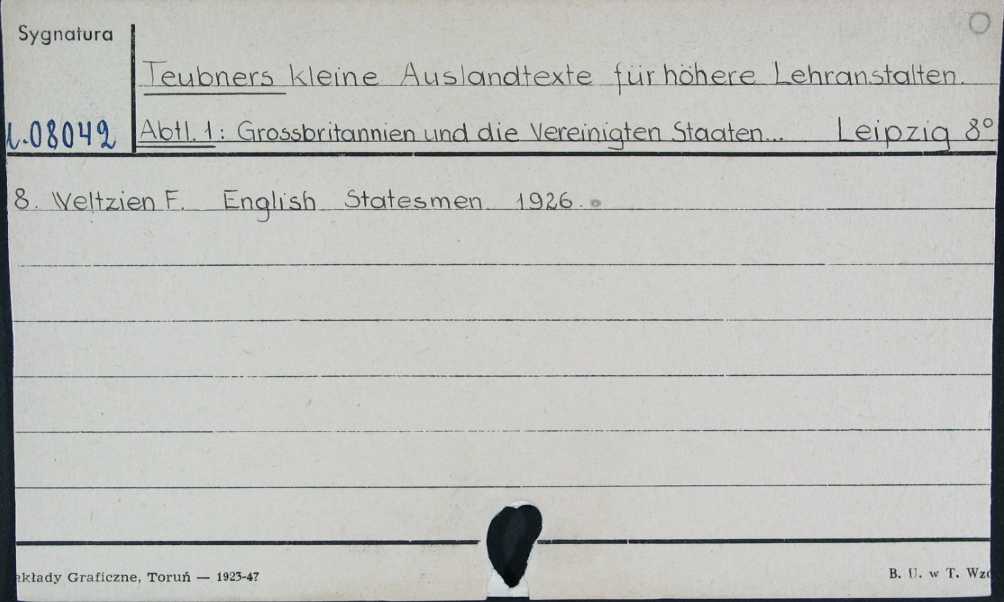 Sygnatura
Teubners kleine Auslandtexte für höhere Lehranstalten.
08042 Abtl. 1: Grossbritannien und die Vereinigten Staaten... Leipzig 8°
8. Weltzien F. English Statesmen 1926.
akłady Graficzne, Toruń — 1923-47
B. U. w T. Wzó